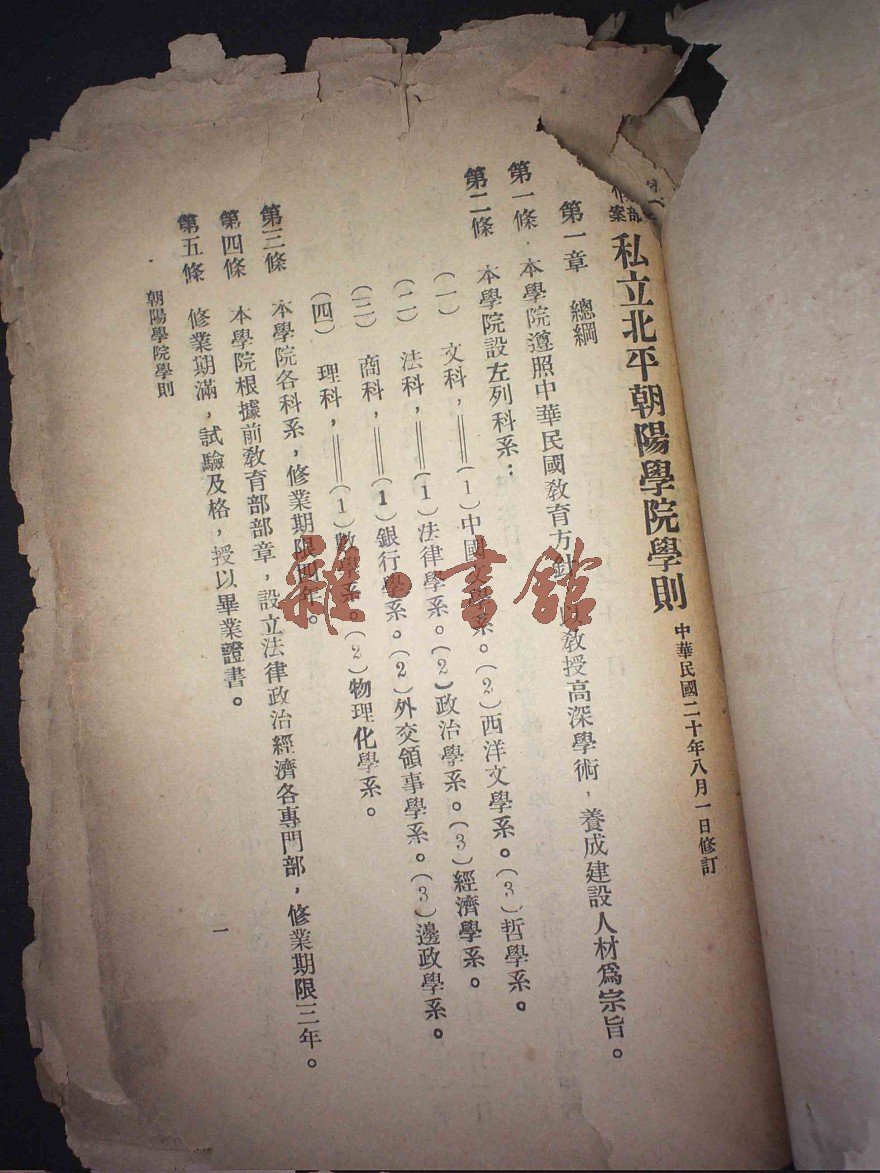 部
案
私立北平朝陽學院學則 中華民國二十年八月一日修訂
第一章 總綱
第一條 本學院遵照中華民國教育方針,以教授高深學術,養成建設人材爲宗旨。
第二條 本學院設左列科系:
(一) 文科,══(1)中國文學系。(2)西洋文學系。(3)哲學系。
(二) 法科,══(1)法律學系。(2)政治學系。(3)經濟學系。
(三) 商科,══(1)銀行學系。(2)外交領事學系。(3)邊政學系。
(四) 理科,══(1)數學系。(2)物理化學系。
第三條 本學院各科系,修業期限四年。
第四條 本學院根據前教育部部章,設立法律政治經濟各專門部,修業期限三年。
第五條 修業期滿,試驗及格,授以畢業證書。
朝陽學院學則
一
雜·書館